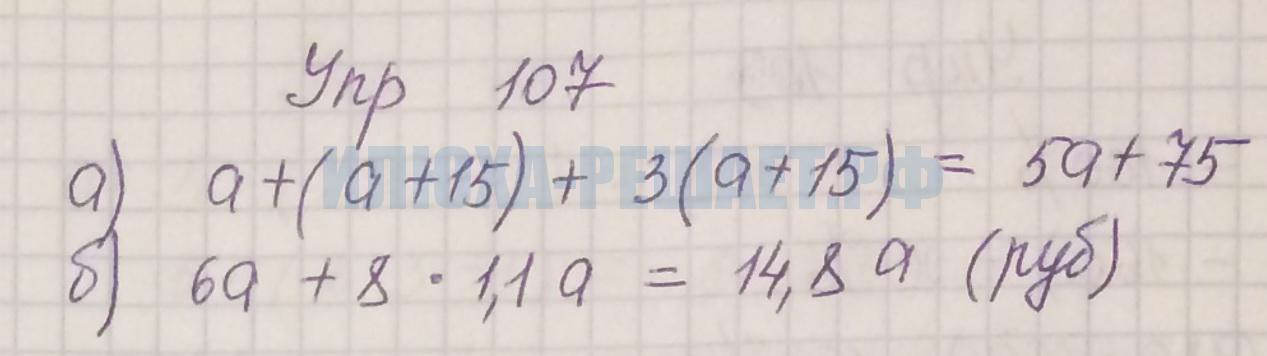 Упр 107
а) a + (a + 15) + 3(a + 15) = 5a + 75
ИЛЮХА-РЕШАЕТ.РФ
б) 6a + 8 · 1,1 a = 14,8 a (руб)